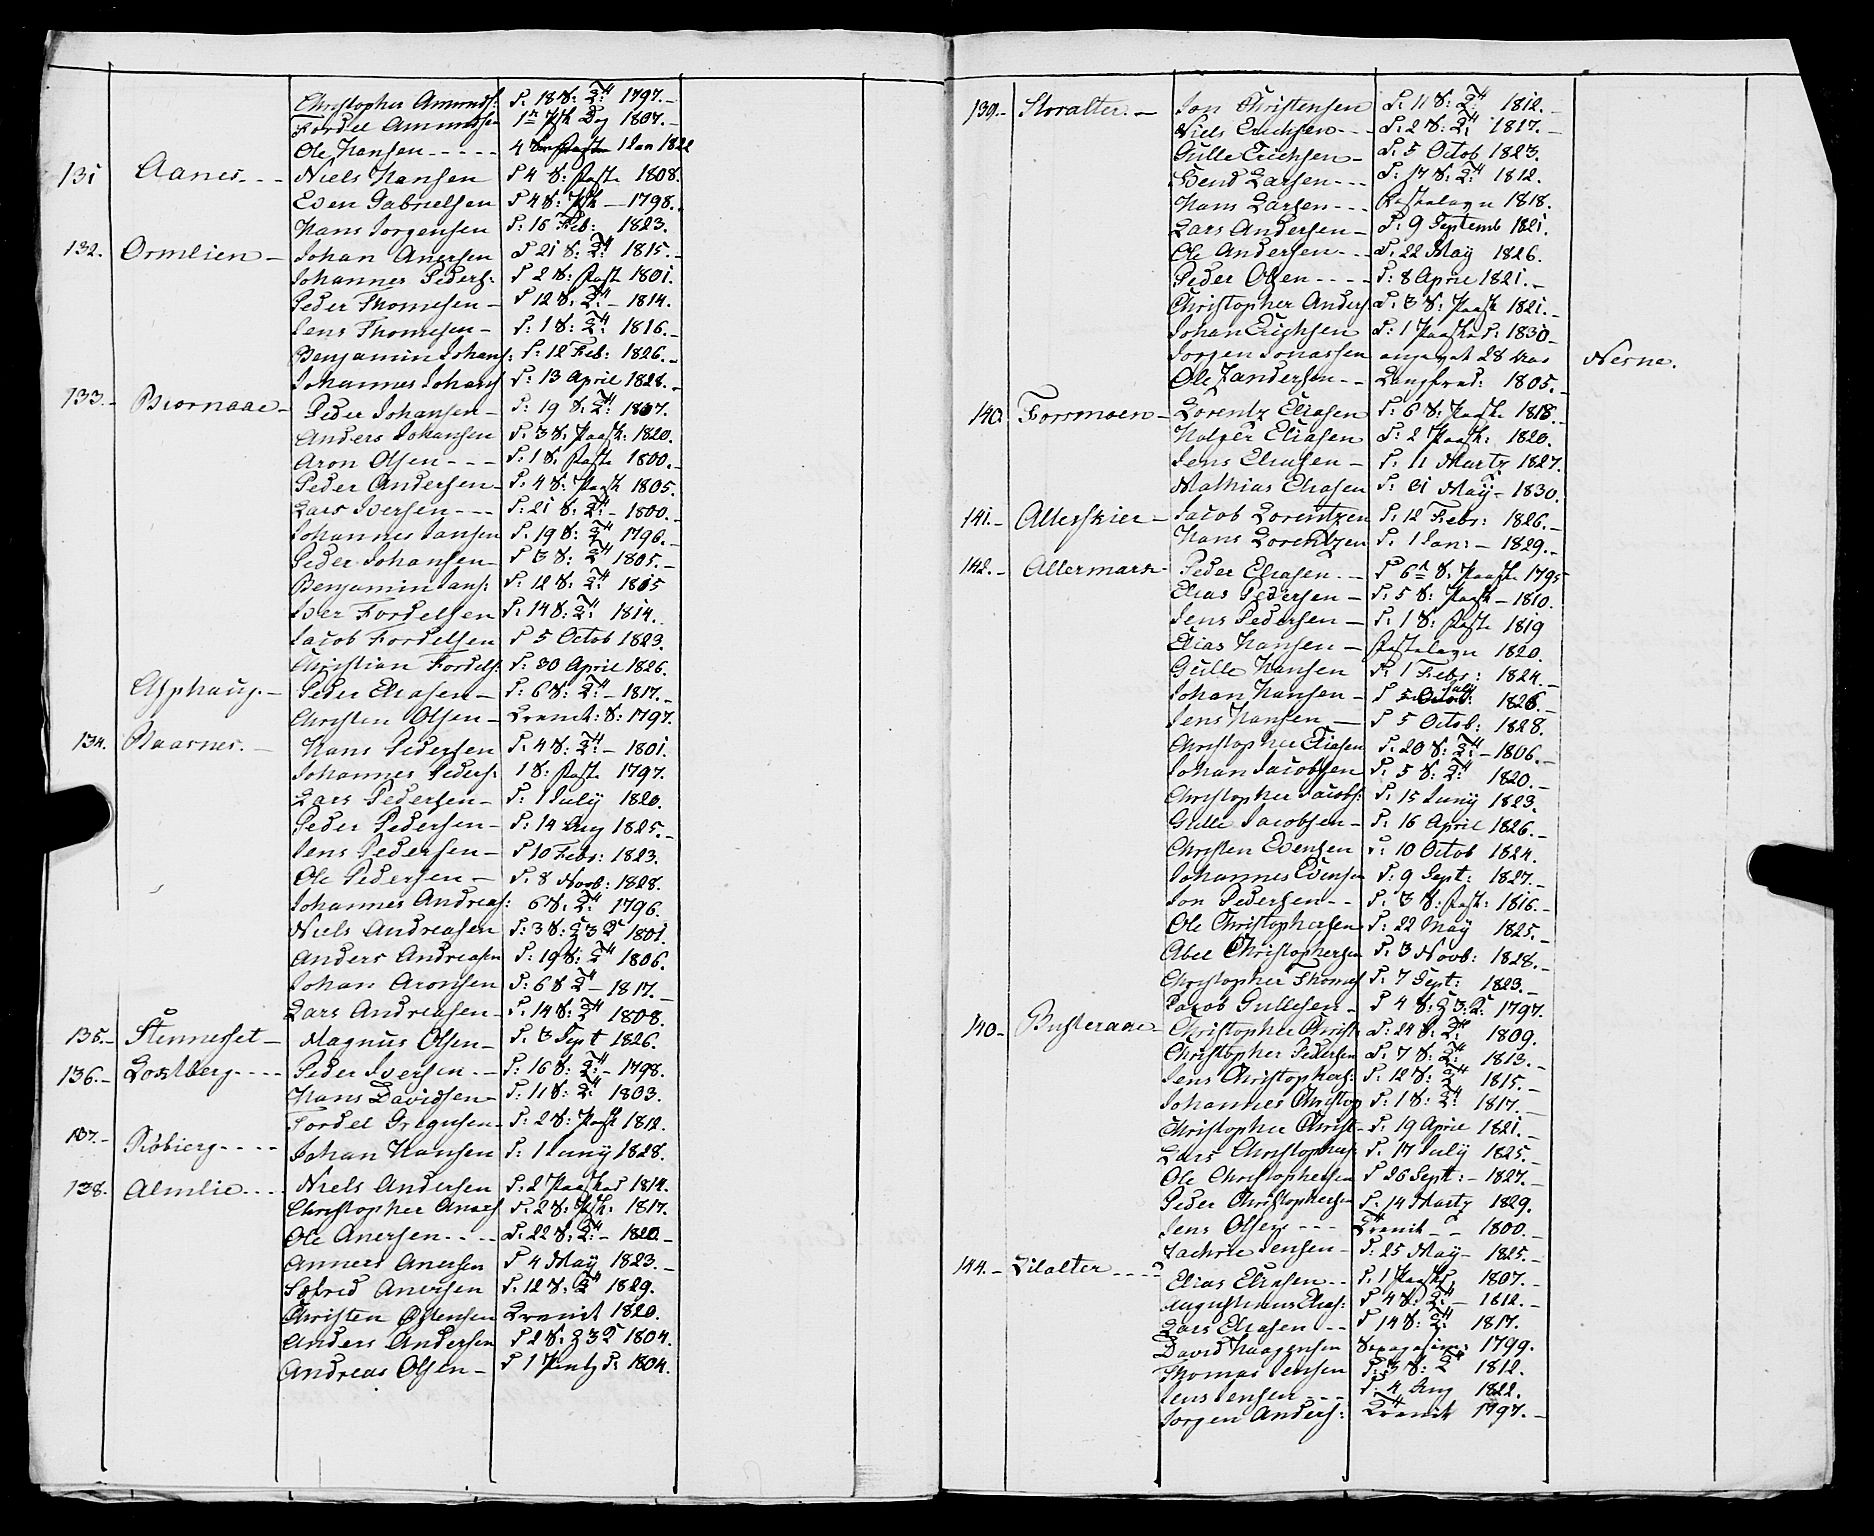 Christopher Amunds: D. 18 S: Tr: 1797.-
Tordel Amundsen 1ste Psk Dag 1807.-
Ole Hansen ----- 4 Jan 1822
131 Aanes.--- Niels Hansen D 4 S: Paske 1808.
Even Gabrielsen D 4 S: Psk - 1798.
Hans Jorgensen D: 16 Feb: 1823.
132. Ormlien - Johan Anersen D 21 S: Tr: 1815.-
Johannes Peders: D 2 S: Paske 1801.
Peder Thomesen - D 12 S: Tr: - 1814.
Jens Thomesen - D: 1 S: Tr: 1816.-
Benjamin Johans: D: 12 Feb: 1826.-
Johannes Johans D: 13 April 1828.-
133.- Biornaae - Peder Johansen - D: 19 S: Tr: 1807.
Anders Johansen D. 3 S. Paask: 1820.
Aron Olsen --- D: 1 S. Paske 1800.-
Peder Andersen - D. 4 S: Paask 1805.
Lars Iversen --- D: 21 S: Tr: - 1800.-
Johannes Jansen D. 19 S: Tr 1796.-
Peder Johansen - D 3 S: Tr 1805.-
Benjamin Jans: D: 12 S: Tr: 1805
Iver Tordelsen D: 14 S: Tr: 1814.
Jacob Tordelsen D 5 Octob 1823.
Christian Tordels: D: 30 April 1826.
Asphaug.- Peder Eliasen - D: 6 S: Tr: - 1817.-
Christen Olsen - Qvamit: S: 1797.
134. Raasnes.- Hans Pedersen D. 4 S: Tr: - 1801.
Johannes Peders: 1 S: Paske 1797.
Lars Pedersen - D: 1 July 1820.
Peder Pedersen - D: 14 Aug 1825.-
Jens Pedersen - D 10 Febr: 1823.
Ole Pedersen - D. 8 Novb: 1828.
Johannes Andreas: 6 S: Tr: 1796.
Niels Andreasen D: 3 S: H 3 K 1801.
Anders Andreasen D: 19 S: Tr 1806.
Johan Aronsen D: 6 S Tr - 1817.-
Lars Andreasen - D. 14 S: Tr 1808.
135.- Stennesset - Magnus Olsen - D. 3 Sept 1826.
136.- Lostberg.--- Peder Iversen - D: 16 S: Tr: - 1798.
Hans Davidsen - D: 11 S: Tr: 1803.
Tordel Gregusen - D: 2 S: Pask 1812.
137.- Røbierg.--- Johan Hansen D: 1 Juny 1828.
138. Almlie.--- Niels Andersen D. 2 Paaskd 1814.
Christopher Anders D. 2 S. Psk: 1817.
Ole Anersen.-- D. 22 S: Tr: - 1820 -
Anners Anersen D 4 May 1823.-
Sefred Anersen D: 12 S: Tr 1829.
Christen Ostensen Qvamit 1820.
Anders Andersen D 2 S: H 3 K 1804.
Andreas Olsen - D 1 Pintz D: 1804.
139.- Storalter.- Jon Christensen D: 11 S: Tr: 1812.-
Niels Erichsen --- D. 2 S: Tr: 1817.-
Gulle Erichsen - D. 5 Octob 1823.
Bend Larsen --- D: 17 S: Tr: 1812.
Hans Larsen --- Paskelavn 1818.
Lars Andersen - D: 9 Septemb 1821.
Ole Andersen --- D. 22 May 1826.
Peder Olsen ---- D: 8 April 1821.-
Christopher Anders D. 3 S. Paask 1821.-
Johan Erichsen D: 1 Paaskd: 1830-
Jorgen Jonassen angivet 28 Aar Nesne.
Ole Zandersen -- Langfred: 1805.-
140. Forsmoen - Lorentz Eliasen D: 6 S: Paask 1818.-
Holger Eliasen D: 2 Paask: 1820.
Jens Eliasen - D: 11 Martz 1827.
Mathias Eliasen D: 31 May - 1830.
141.- Alterskier - Jacob Lorentzen D: 12 Febr: 1826.-
Hans Lorentzen D: 1 Jan: - 1829.-
142.- Altermark - Peder Eliasen -- D 6te S: Paask 1795
Elias Pedersen - D. 5 S: Paask - 1810.
Jens Pedersen - D. 1 S: Paske 1819
Elias Hansen - Paskelavn 1820.
Gulle Hansen D: 1 Febr: 1824.-
Johan Hansen - D 5 July 1826.-
Jens Hansen - D 5 Octob: 1828.
Christopher Eliasen D. 20 S: Tr: - 1806.-
Johan Jacobsen D: 5 S: Tr: 1820.-
Christopher Jacobs: D. 15 Juny 1823.
Gulle Jacobsen - D: 16 April 1826.-
Christen Evensen D: 10 Octob 1824.
Johannes Evensen D: 9 Sept: 1827.-
Jon Pedersen -- D. 3 S: Pask: 1816.-
Ole Christophersen D: 22 May 1825.-
Abel Christophersen D. 3 Novb: 1828.-
Christopher Thomes D. 7 Sept: 1823.-
Jacob Gullesen - D 4 S: H 3: K: 1797.
140 - Busteraae - Christopher Christ: D: 24 S: Tr: 1809.
Christopher Pedersen D. 7 S: Tr: 1813.-
Jens Christophers: D: 12 S: Tr 1815.-
Johannes Christop D: 1 S: Tr: 1817.-
Christopher Christ- D. 19 April 1821.-
Lars Christophers D. 17 July 1825.-
Ole Christophersen D 26 Sept: - 1827.-
Peder Christophersen D. 14 Martz 1829.
Jens Olsen --- Qvamit - 1800.-
Zachrie Jensen - D: 25 May - 1825.-
144.- Lilalter ---- Elias Eliasen -- D. 1 Paaskd. 1807.-
Augustinus Elias: D 4 S: Tr: - 1812.-
Lars Eliasen --- D 14 S: Tr: 1817.
David Haagensen 1799.
Thomas Jensen D: 3 S: Tr 1812.
Jens Jensen --- D: 4 Aug 1822.
Jorgen Anders: Qvamit 1797.-